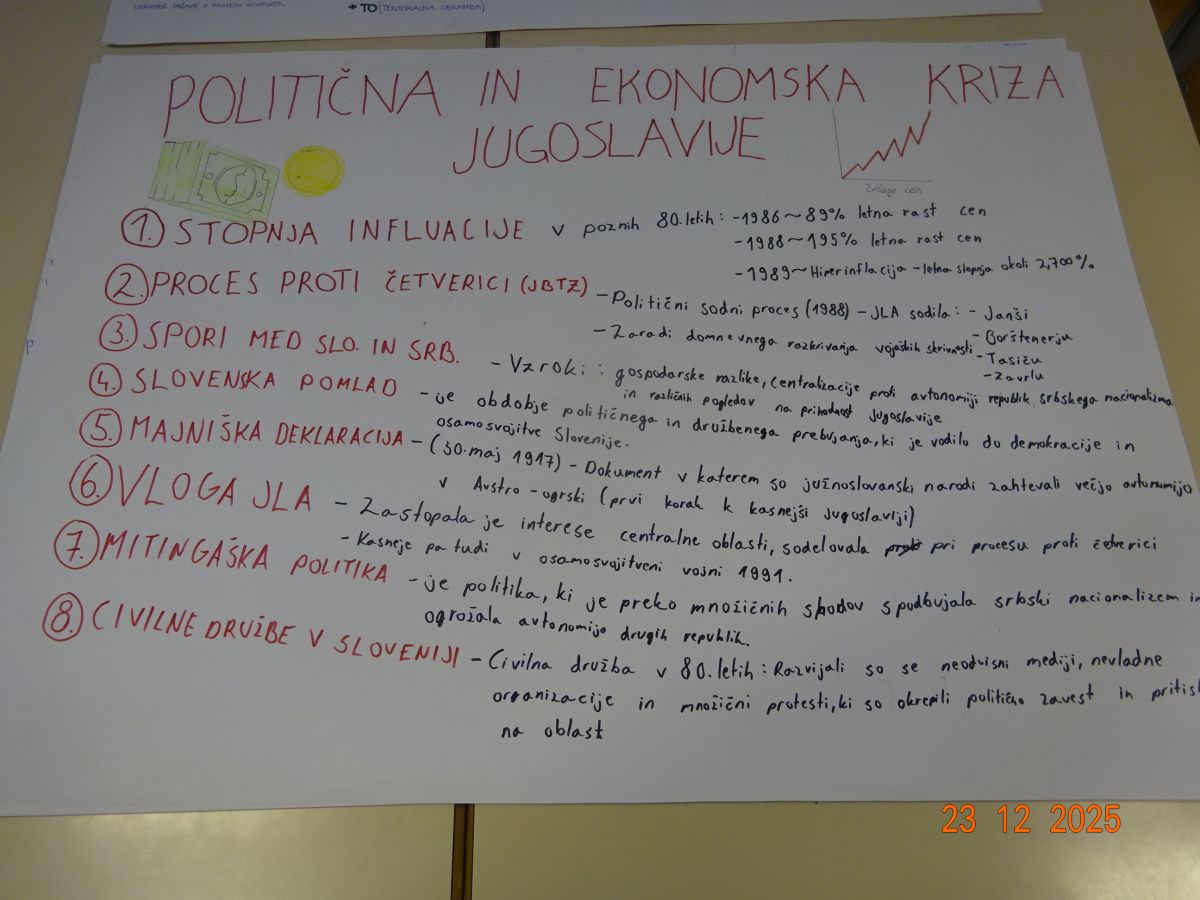 OBRAMBE DRŽAVE V PRIMERU KONFLIKTA
*TO (TERITORIALNA OBRAMBA)
POLITIČNA IN EKONOMSKA KRIZA
JUGOSLAVIJE
Zvišanje cen
1. STOPNJA INFLUACIJE v poznih 80. letih: -1986~89% letna rast cen
-1988~195% letna rast cen
-1989~Hiperinflacija -letna stopnja okoli 2,700%
2. PROCES PROTI ČETVERICI (JBTZ) -Politični sodni proces (1988) - JLA sodila: - Janši
- Borštenerju
- Zaradi domnevnega razkrivanja vojaških skrivnosti
-Tasiču
-Zavrlu
3. SPORI MED SLO. IN SRB. - Vzroki: gospodarske razlike, centralizacije proti avtonomiji republik, srbskega nacionalizma
in različnih pogledov na prihodnost Jugoslavije
4. SLOVENSKA POMLAD -je obdobje političnega in družbenega prebujanja, ki je vodilo do demokracije in
osamosvojitve Slovenije.
5. MAJNIŠKA DEKLARACIJA - (30. maj 1917) - Dokument v katerem so južnoslovanski narodi zahtevali večjo avtonomijo
v Avstro-ogrski (prvi korak k kasnejši Jugoslaviji)
6. VLOGA JLA - Zastopala je interese centralne oblasti, sodelovala pri procesu proti četverici
- Kasneje pa tudi v osamosvojitveni vojni 1991.
7. MITINGAŠKA POLITIKA -je politika, ki je preko množičnih shodov spodbujala srbski nacionalizem in
ogrožala avtonomijo drugih republik.
8. CIVILNE DRUŽBE V SLOVENIJI - Civilna družba v 80. letih: Razvijali so se neodvisni mediji, nevladne
organizacije in množični protesti, ki so okrepili politično zavest in pritisk
na oblast
23 12 2025